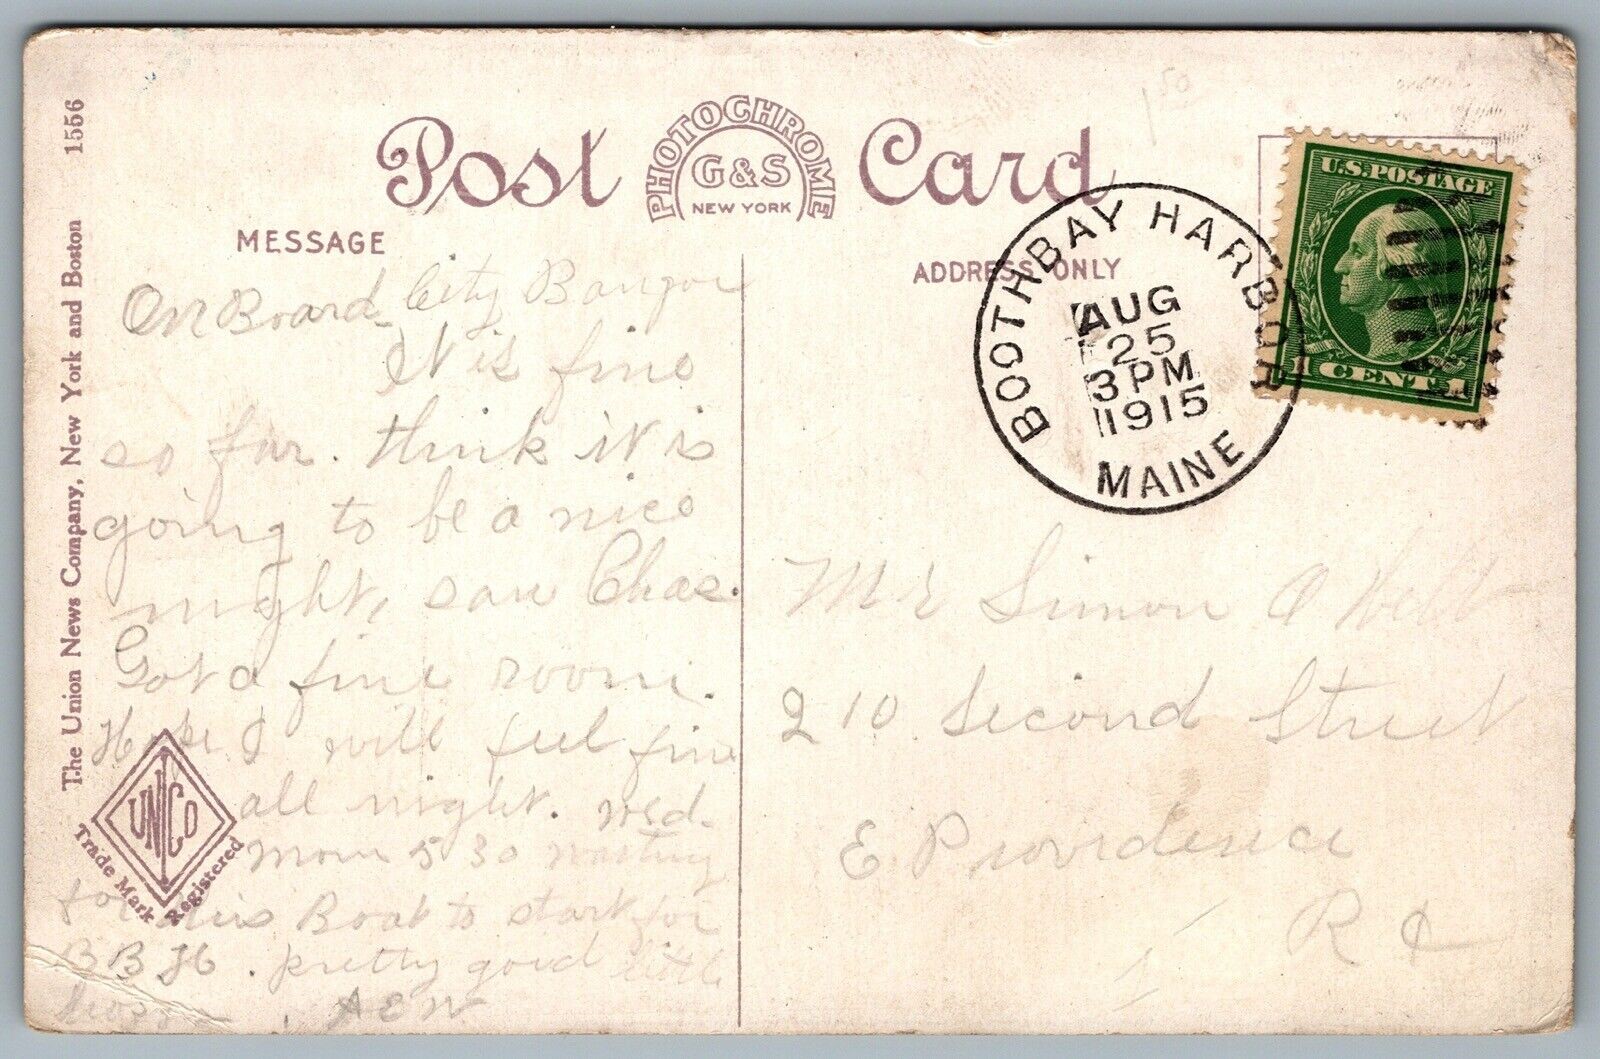 Post Card
PHOTOCHROME
G&S
NEW YORK
MESSAGE
ADDRESS ONLY
1556
The Union News Company, New York and Boston
UNICO
Trade Mark Registered
1 50
U.S. POSTAGE
1 CENT 1
BOOTHBAY HARBOR
AUG
25
3 PM
1915
MAINE
On Board City Bangor
It is fine
so far. think it is
going to be a nice
night, saw Chas.
Got a fine room.
Hope I will feel fine
all night. Wed.
Morn 5 30 Waiting
for this Boat to start for
BBH. pretty good little
AEW
Mr Simon A Webb
210 Second Street
E Providence
R I